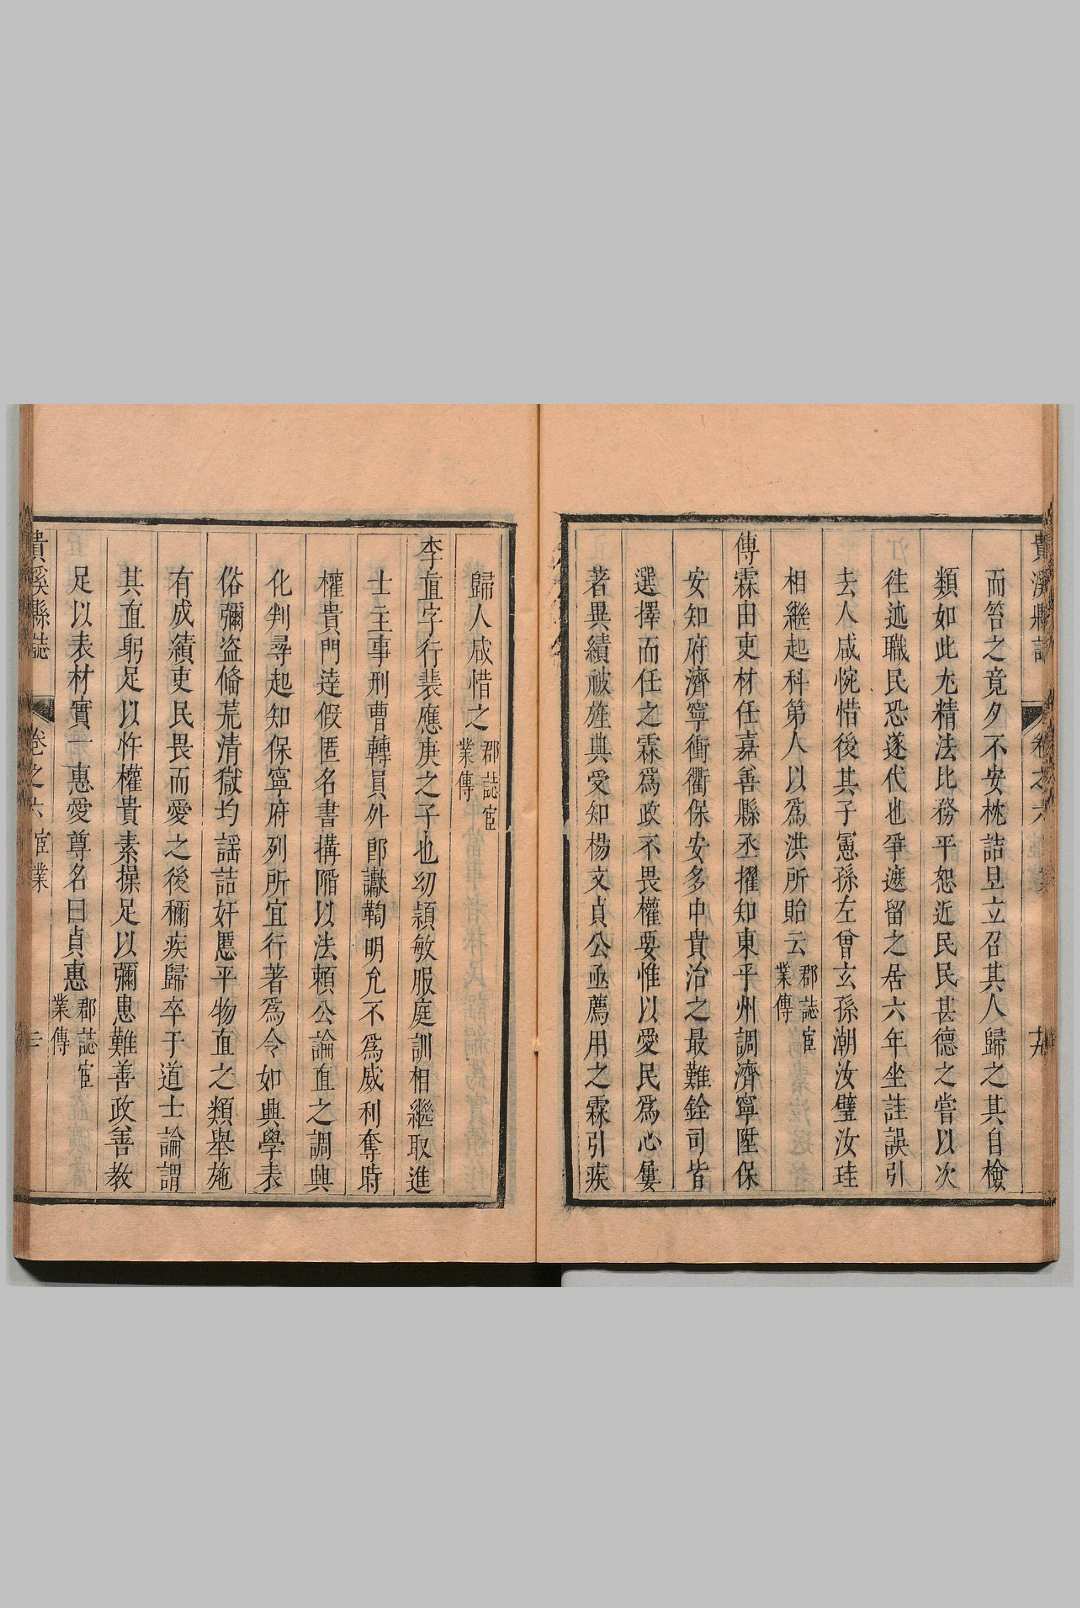 貴溪縣誌 卷之六 宦業 十九
而笞之竟夕不安枕詰旦立召其人歸之其自檢
類如此尤精法比務平恕近民民甚德之嘗以次
往述職民恐遂代也爭遮留之居六年坐詿誤引
去人咸惋惜後其子憲孫左曾玄孫潮汝璧汝珪
相繼起科第人以爲洪所貽云郡誌宦業傳
傅霖由吏材任嘉善縣丞擢知東平州調濟寧陞保
安知府濟寧衝衢保安多中貴治之最難銓司皆
選擇而任之霖爲政不畏權要惟以愛民爲心屢
著異績被旌典受知楊文貞公亟薦用之霖引疾
歸人咸惜之郡誌宦業傳
李直字行裴應庚之子也幼穎敏服庭訓相繼取進
士主事刑曹轉員外郎讞鞫明允不爲威利奪時
權貴門達假匿名書搆階以法賴公論直之調興
化判尋起知保寧府列所宜行著爲令如興學表
俗彌盜俻荒清獄均謡詰奸慝平物直之類舉施
有成績吏民畏而愛之後穪疾歸卒于道士論謂
其直躬足以忤權貴素操足以彌患難善政善教
足以表材實一惠愛尊名曰貞惠郡誌宦業傳
貴溪縣誌 卷之六 宦業 二十